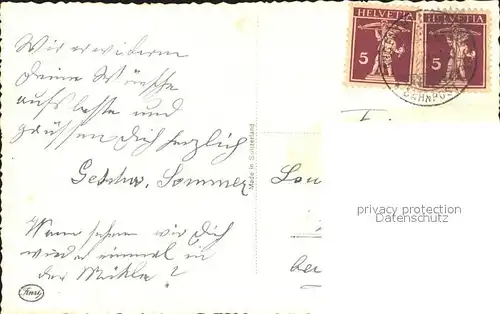 Wir erwidern
Deine Wünsche
aufs beste und
grüssen Dich herzlich
Geschw. Sommer
Wann sehen wir Dich
wieder einmal in
der
?
Made in Switzerland
HELVETIA HELVETIA
5 5
BAHNPOST
I.
privacy protection
Datenschutz